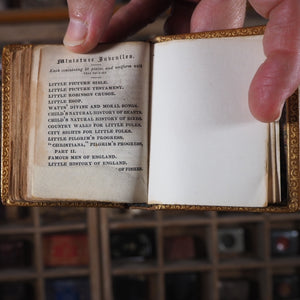 Miniature Juveniles.
Each containing
LITTLE PICTURE BIBLE.
LITTLE PICTURE TESTAMENT.
LITTLE ROBINSON CRUSOE.
LITTLE ESOP.
WATTS' DIVINE AND MORAL SONGS.
CHILD'S NATURAL HISTORY OF BEASTS.
CHILD'S NATURAL HISTORY OF BIRDS.
COUNTRY WALKS FOR LITTLE FOLKS.
CITY SIGHTS FOR LITTLE FOLKS.
LITTLE PILGRIM'S PROGRESS.
"CHRISTIANA," PILGRIM'S PROGRESS,
PART II.
FAMOUS MEN OF ENGLAND.
LITTLE HISTORY OF ENGLAND.